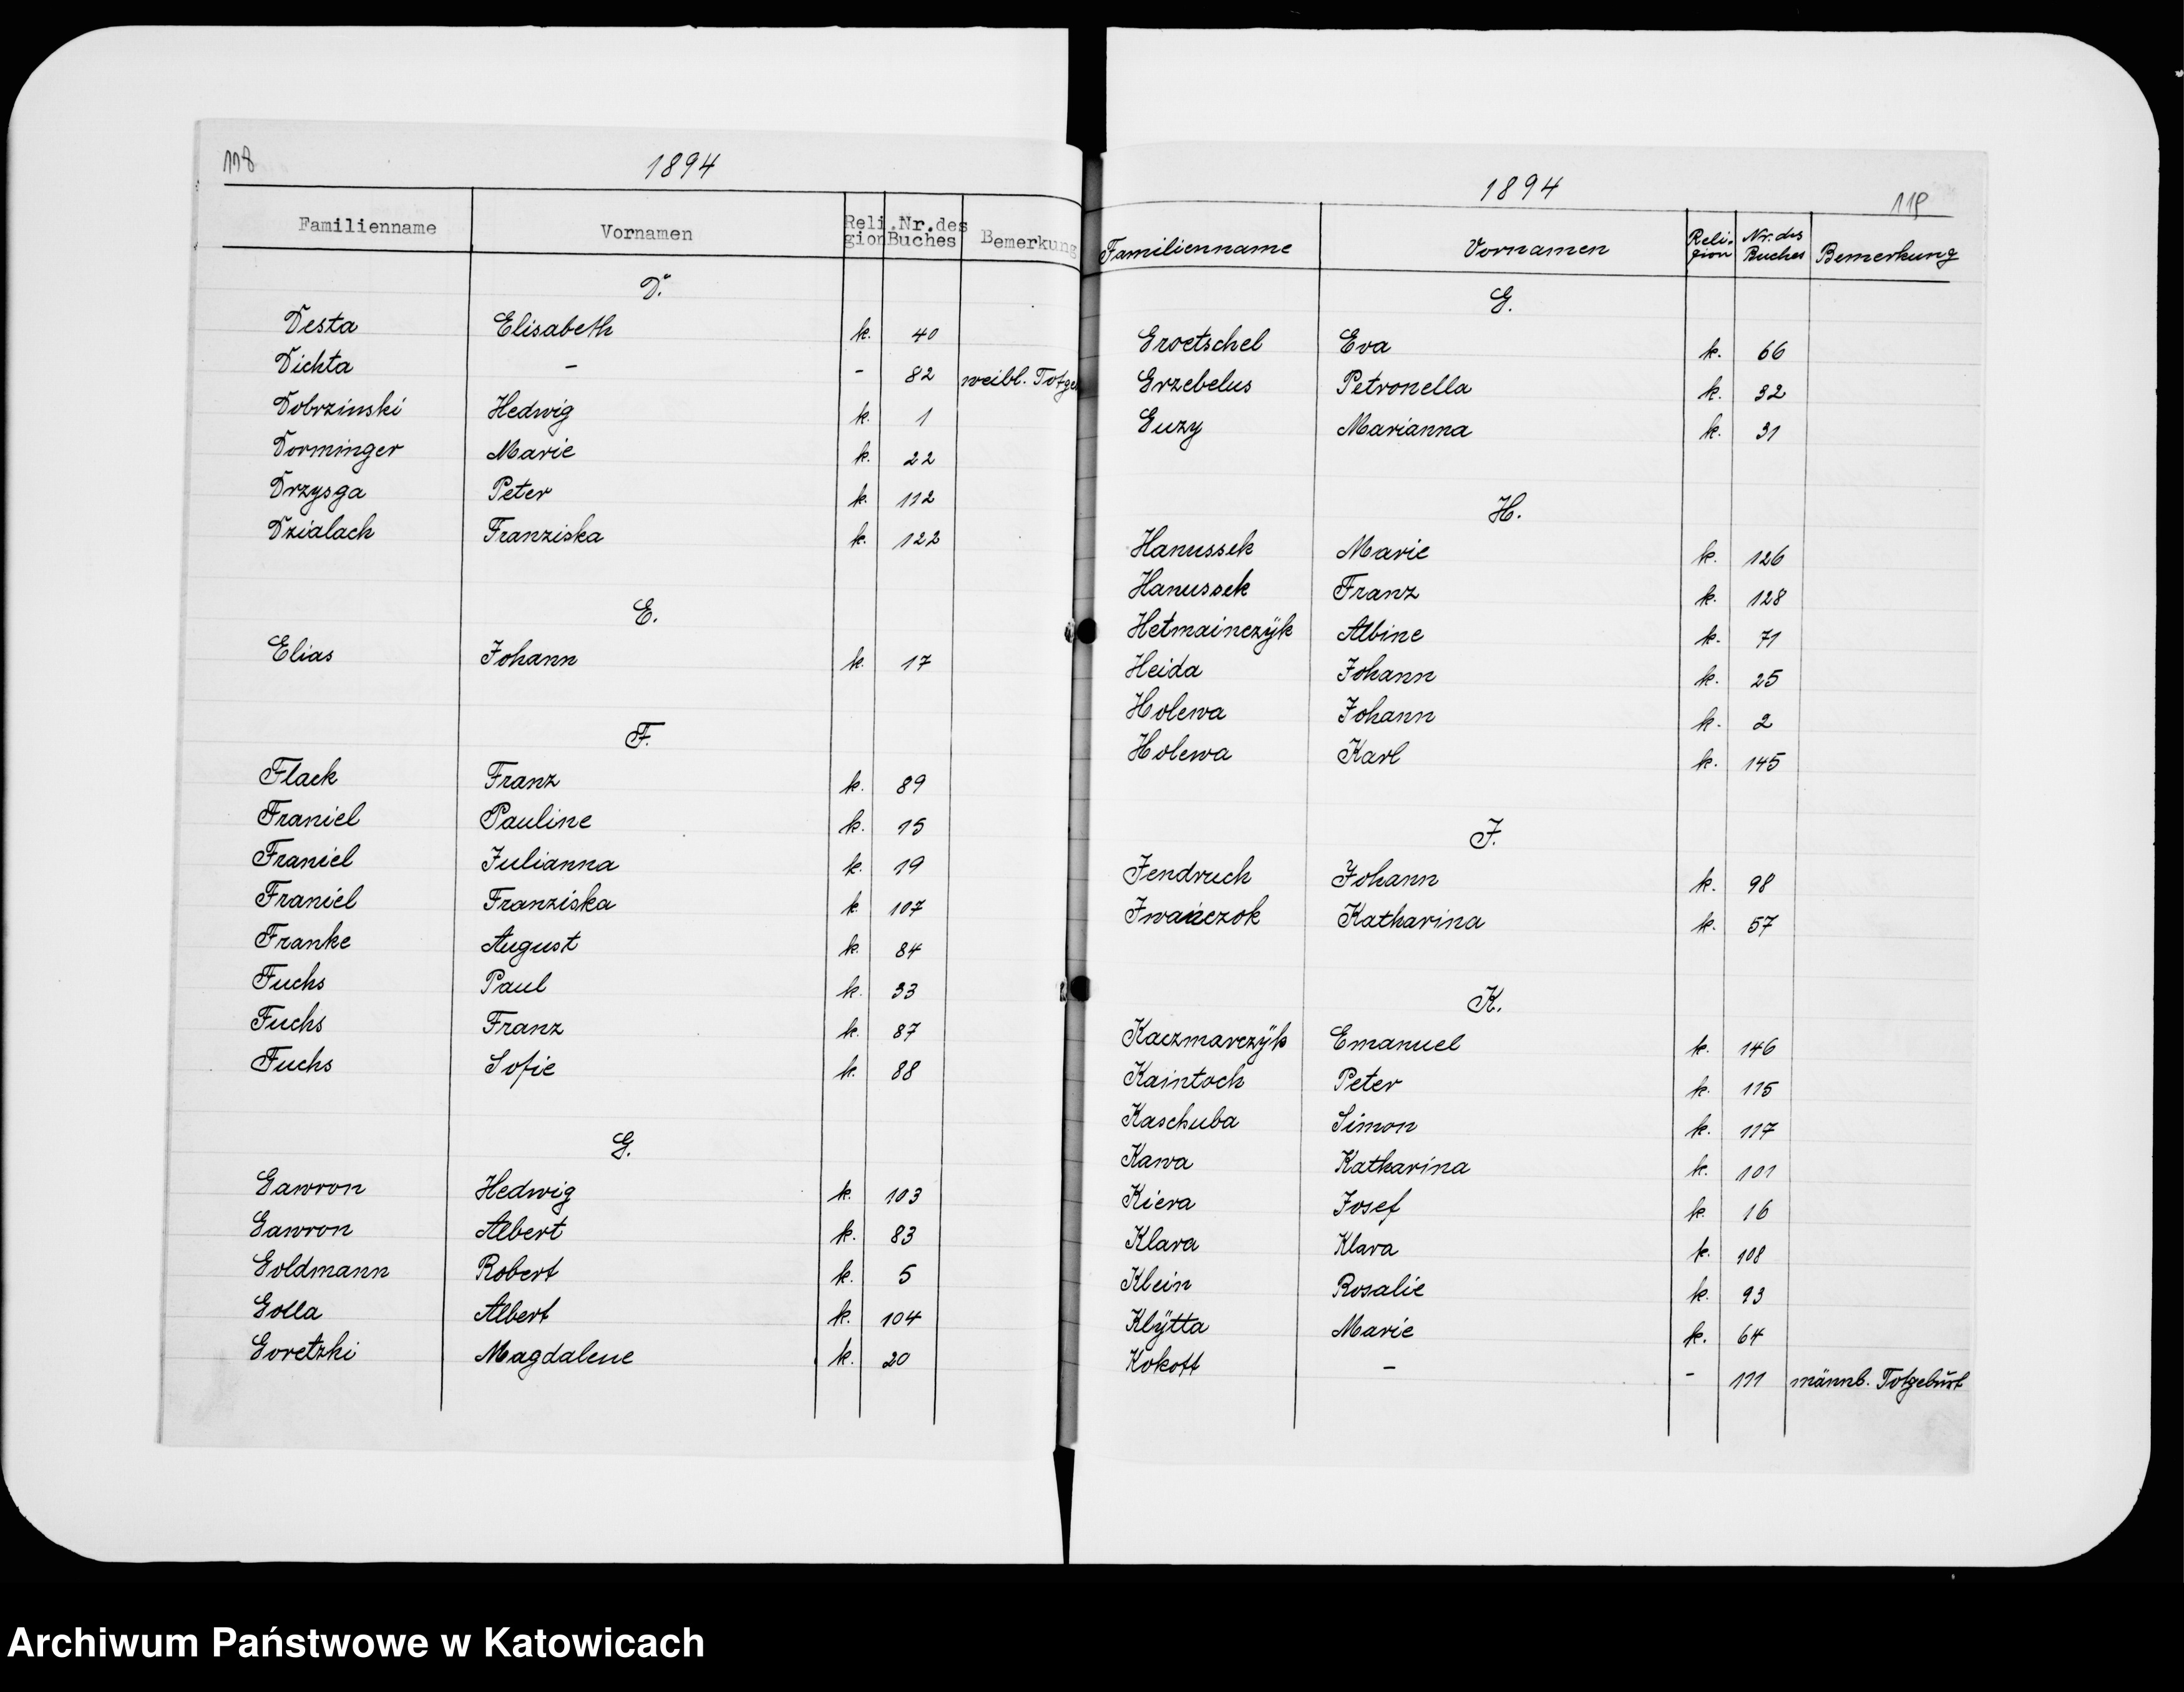 118
1894
Familienname Vornamen Reli. gion Nr. des Buches Bemerkung
D.
Desta Elisabeth k. 40
Dichta - - 82 weibl.
Dobrzinski Hedwig k. 1
Dorminger Marie k. 22
Drzysga Peter k. 112
Dzialach Franziska k. 122
E.
Elias Johann k. 17
F.
Flack Franz k. 89
Franiel Pauline k. 15
Franiel Julianna k. 19
Franiel Franziska k. 107
Franke August k. 84
Fuchs Paul k. 33
Fuchs Franz k. 87
Fuchs Sofie k. 88
G.
Gawron Hedwig k. 103
Gawron Albert k. 83
Goldmann Robert k. 5
Golla Albert k. 104
Goretzki Magdalene k. 20
1894
119
Familienname Vornamen Reli. gion Nr. des Buches Bemerkung
G.
Groetschel Eva k. 66
Grzebelus Petronella k. 32
Guzy Marianna k. 31
H.
Hanussek Marie k. 126
Hanussek Franz k. 128
Hetmainczÿk Albine k. 71
Heida Johann k. 25
Holewa Johann k. 2
Holewa Karl k. 145
J.
Jendruch Johann k. 98
Iwańczok Katharina k. 57
K.
Kaczmarczÿk Emanuel k. 146
Kaintoch Peter k. 115
Kaschuba Simon k. 117
Kawa Katharina k. 101
Kiera Josef k. 16
Klara Klara k. 108
Klein Rosalie k. 93
Klÿtta Marie k. 64
Kokott - - 111 männl. Totgeburt
Archiwum Państwowe w Katowicach